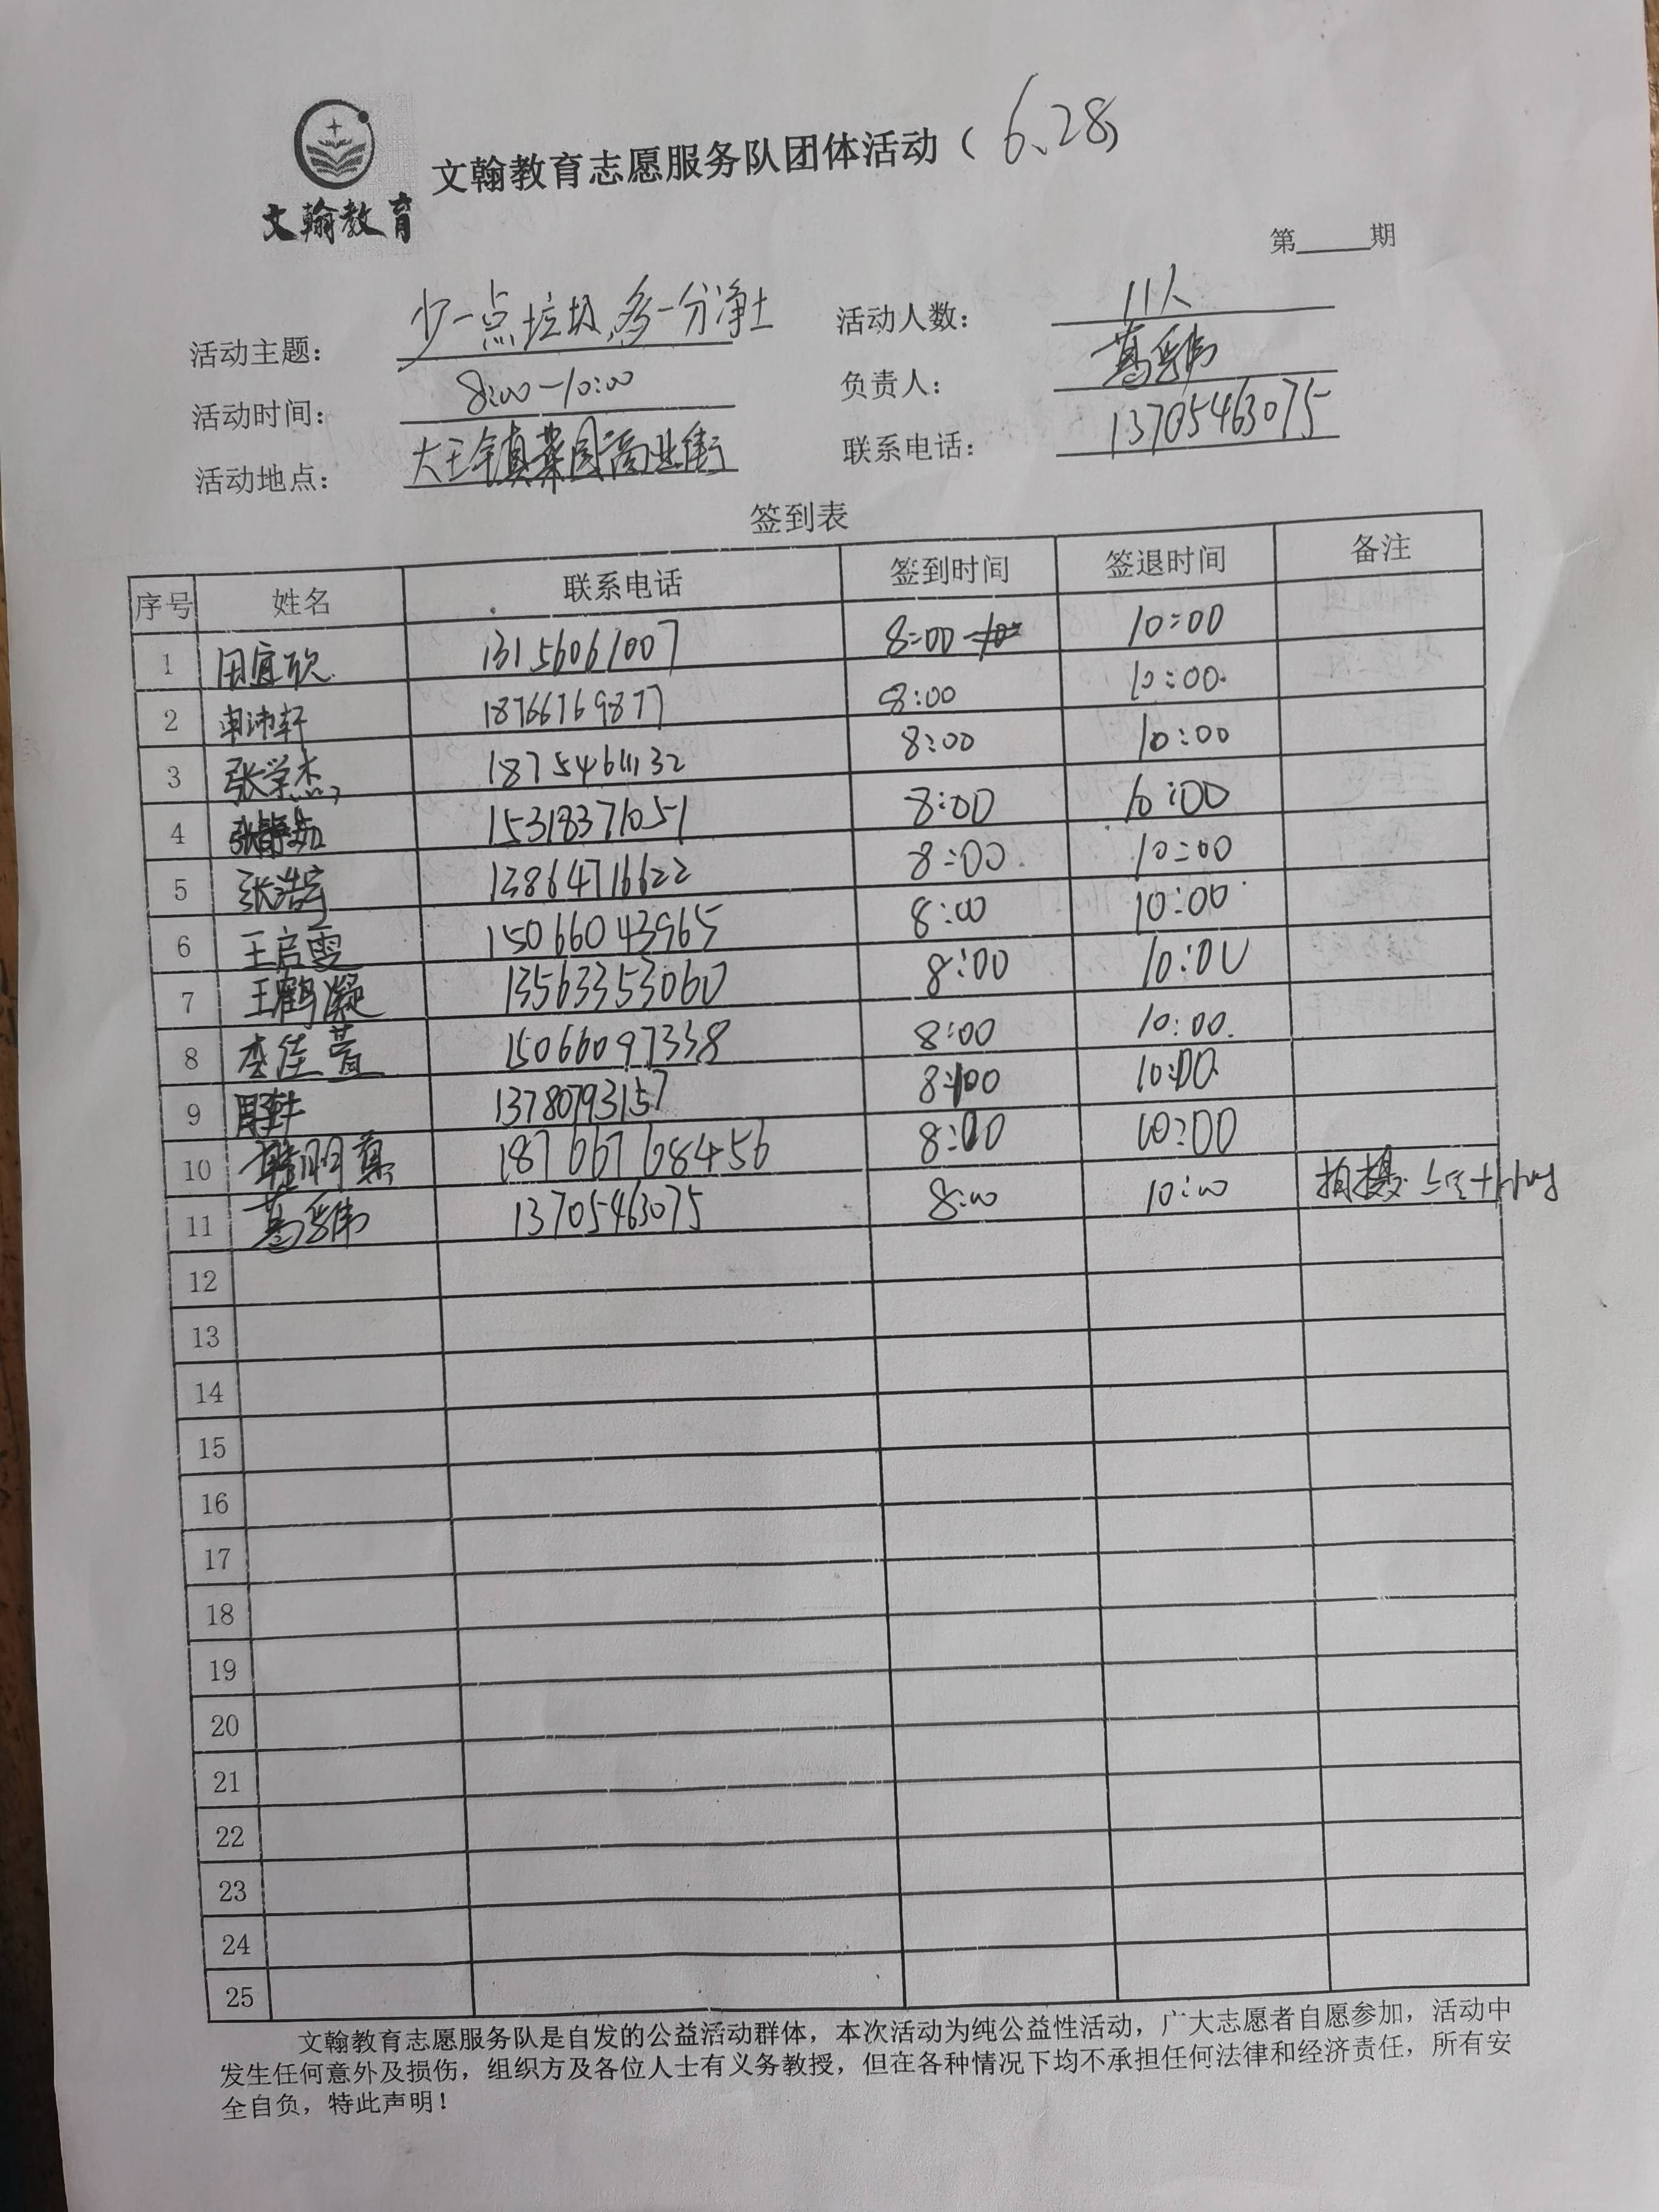 文翰教育志愿服务队团体活动（6.28）
文翰教育
第____期
活动主题： 少一点垃圾,多一分净土 活动人数： 11人
活动时间： 8:00—10:00 负责人：
活动地点： 大王镇菜园商业街 联系电话： 13705463075
签到表
序号 姓名 联系电话 签到时间 签退时间 备注
1 田宜欣 13156061007 8:00 10:00
2 18766769877 8:00 10:00
3 张学杰 18754611132 8:00 10:00
4 张静茹 15318371051 8:00 10:00
5 张浩宇 13864716622 8:00 10:00
6 王启雯 15066043965 8:00 10:00
7 王鹤凝 13563353060 8:00 10:00
8 李佳萱 15066097338 8:00 10:00
9 13780793157 8:00 10:00
10 韩明真 187667684456 8:00 10:00
11 13705463075 8:00 10:00 拍摄
12
13
14
15
16
17
18
19
20
21
22
23
24
25
文翰教育志愿服务队是自发的公益活动群体，本次活动为纯公益性活动，广大志愿者自愿参加，活动中
发生任何意外及损伤，组织方及各位人士有义务教授，但在各种情况下均不承担任何法律和经济责任，所有安
全自负，特此声明！